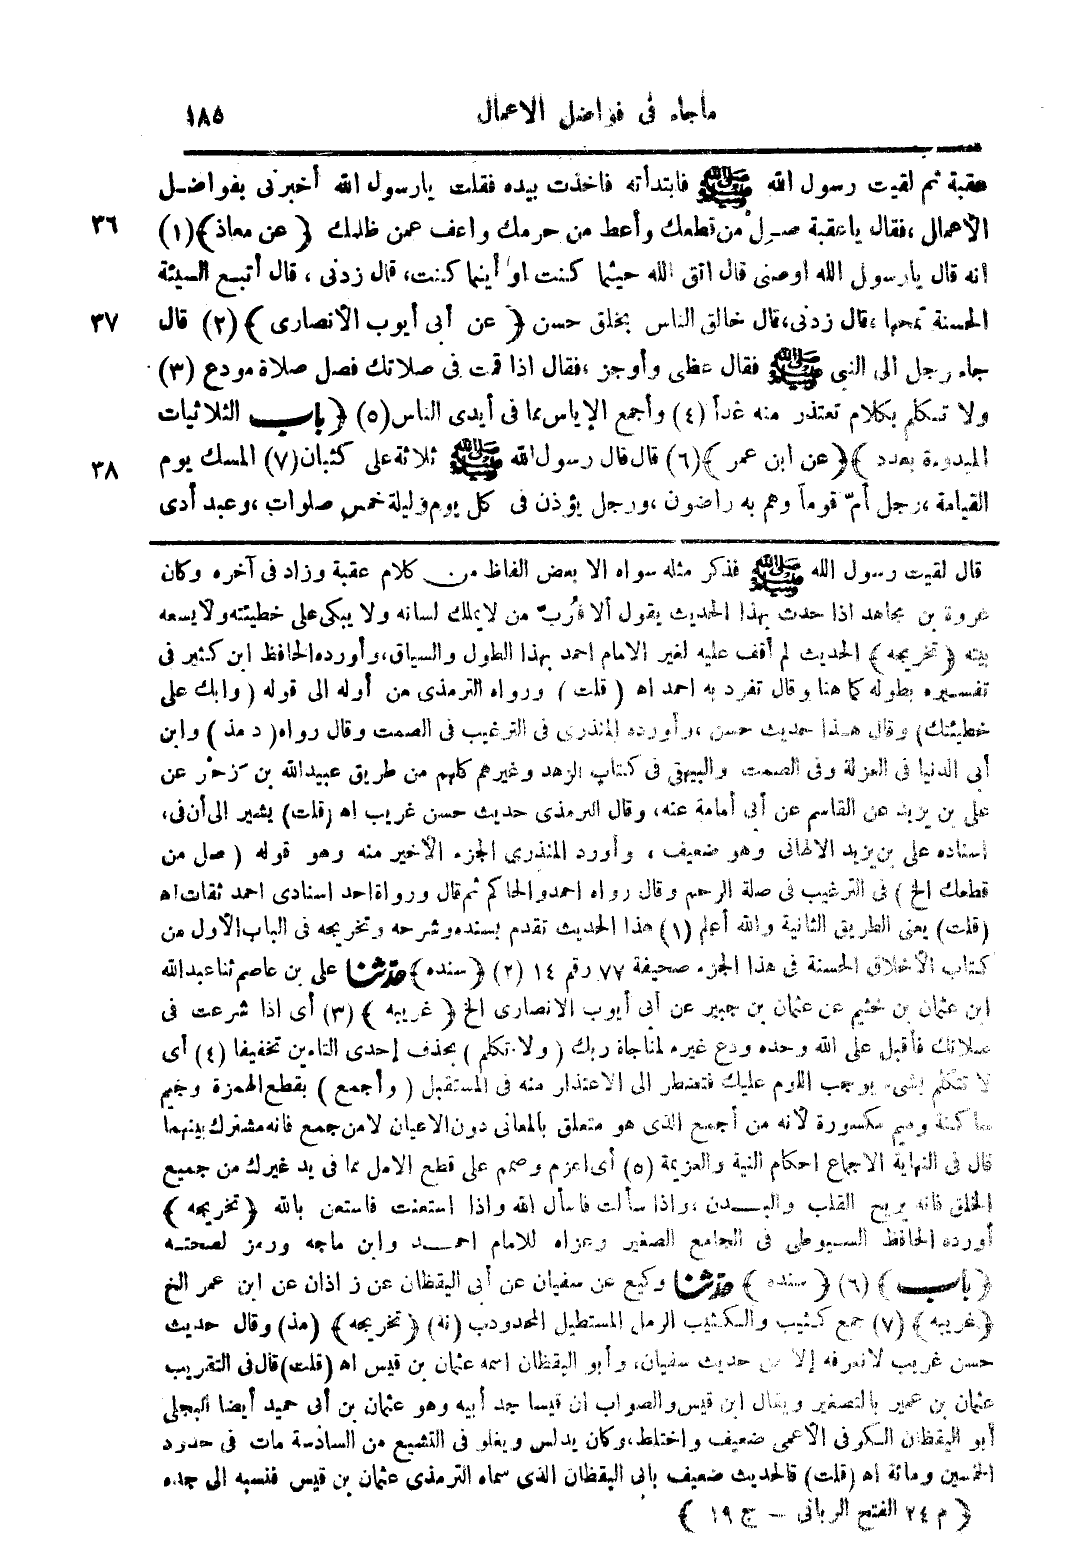 ماجاء فى فواضل الاعمال ١٨٥
عقبة ثم لقيت رسول الله ﷺ فابتدأته فاخذت بيده فقلت يارسول الله أخبرنى بفواضل
٣٦ الأعمال ،فقال ياعقبة صل من قطعك وأعط من حرمك واعف عمن ظلمك ﴿ عن معاذ﴾(١)
انه قال يارسول الله اوصنى قال اتق الله حيثما كنت او أينما كنت، قال زدنى ، قال أتبع السيئة
٣٧ الحسنة تمحها ،قال زدنى،قال خالق الناس بخلق حسن ﴿ عن أبى أيوب الأنصارى ﴾(٢) قال
جاء رجل الى النبى ﷺ فقال عظى وأوجز ،فقال اذا قمت فى صلاتك فصل صلاة مودع (٣)
ولا تكلم بكلام تعتذر منه غداً (٤) وأجمع الإياس مما فى أيدى الناس(٥) ﴿ باب الثلاثيات
٣٨ المبدوءة بعدد ﴾﴿ عن ابن عمر ﴾(٦) قال قال رسول الله ﷺ ثلاثة على كثبان(٧) المسك يوم
القيامة ،رجل أمّ قوماً وهم به راضون ،ورجل يؤذن فى كل يوم وليلة خمس صلوات ،وعبد أدى
قال لقيت رسول الله ﷺ فذكر مثله سواه الا بعض الفاظ من كلام عقبة وزاد فى آخره وكان
عروة بن مجاهد اذا حدث بهذا الحديث يقول ألا فرُبّ من لا يملك لسانه ولا يبكى على خطيئته ولا يسعه
بيته ﴿ تخريجه ﴾ الحديث لم أقف عليه لغير الامام احمد بهذا الطول والسياق،وأورده الحافظ ابن كثير فى
تفسيره بطوله كما هنا وقال تفرد به احمد اه ( قلت ) ورواه الترمذى من أوله الى قوله ( وابك على
خطيئتك) وقال هذا حديث حسن ،وأورده المنذرى فى الترغيب فى الصمت وقال رواه( د مذ ) وابن
أبى الدنيا فى العزلة وفى الصمت والبيهقى فى كتاب الزهد وغيرهم كلهم من طريق عبيدالله بن زحر عن
على بن يزيد عن القاسم عن أبى أمامة عنه، وقال الترمذى حديث حسن غريب اه (قلت) يشير الى أن فى،
اسناده على بن يزيد الالهانى وهو ضعيف ، وأورد المنذرى الجزء الأخير منه وهو قوله ( صل من
قطعك الخ ) فى الترغيب فى صلة الرحم وقال رواه احمد والحاكم ثم قال ورواة احد اسنادى احمد ثقات اه
(قلت) يعنى الطريق الثانية والله أعلم (١) هذا الحديث تقدم بسنده وشرحه وتخريجه فى الباب الأول من
كتاب الأخلاق الحسنة فى هذا الجزء صحيفة ٧٧ رقم ١٤ (٢) ﴿ سنده ﴾ حدثنا على بن عاصم ثنا عبدالله
ابن عثمان بن خثيم عن عثمان بن جبير عن أبى أيوب الانصارى الخ ﴿ غريبه ﴾ (٣) أى اذا شرعت فى
صلاتك فأقبل على الله وحده ودع غيره لمناجاة ربك ( ولا تكلم ) بحذف إحدى التاءين تخفيفا (٤) أى
لا تتكلم بشىء يوجب اللوم عليك فتضطر الى الاعتذار منه فى المستقبل ( وأجمع ) بقطع الهمزة وجيم
ساكنة وميم مكسورة لأنه من أجمع الذى هو متعلق بالمعانى دون الاعيان لا من جمع فانه مشترك بينهما
قال فى النهاية الاجماع احكام النية والعزيمة (٥) أى اعزم وصمم على قطع الامل مما فى يد غيرك من جميع
الخلق فانه يريح القلب والبدن ،واذا سألت فاسأل الله واذا استعنت فاستعن بالله ﴿ تخريجه ﴾
أورده الحافظ السيوطى فى الجامع الصغير وعزاه للامام احمد وابن ماجه ورمز لصحته
﴿ باب ﴾ (٦) ﴿ سنده ﴾ حدثنا وكيع عن سفيان عن أبى اليقظان عن زاذان عن ابن عمر الخ
﴿ غريبه ﴾ (٧) جمع كثيب والكثيب الرمل المستطيل المحدودب (نه) ﴿ تخريجه ﴾ (مذ) وقال حديث
حسن غريب لا نعرفه إلا من حديث سفيان، وأبو اليقظان اسمه عثمان بن قيس اه (قلت) قال فى التقريب
عثمان بن عمير بالتصغير ويقال ابن قيس والصواب ان قيسا جد أبيه وهو عثمان بن أبى حميد أيضا البجلى
أبو اليقظان الكوفى الأعمى ضعيف واختلط،وكان يدلس ويغلو فى التشيع من السادسة مات فى حدود
الخمسين ومائة اه (قلت) فالحديث ضعيف بابى اليقظان الذى سماه الترمذى عثمان بن قيس فنسبه الى جده
﴿ م ٢٤ الفتح الربانى – ج ١٩ ﴾